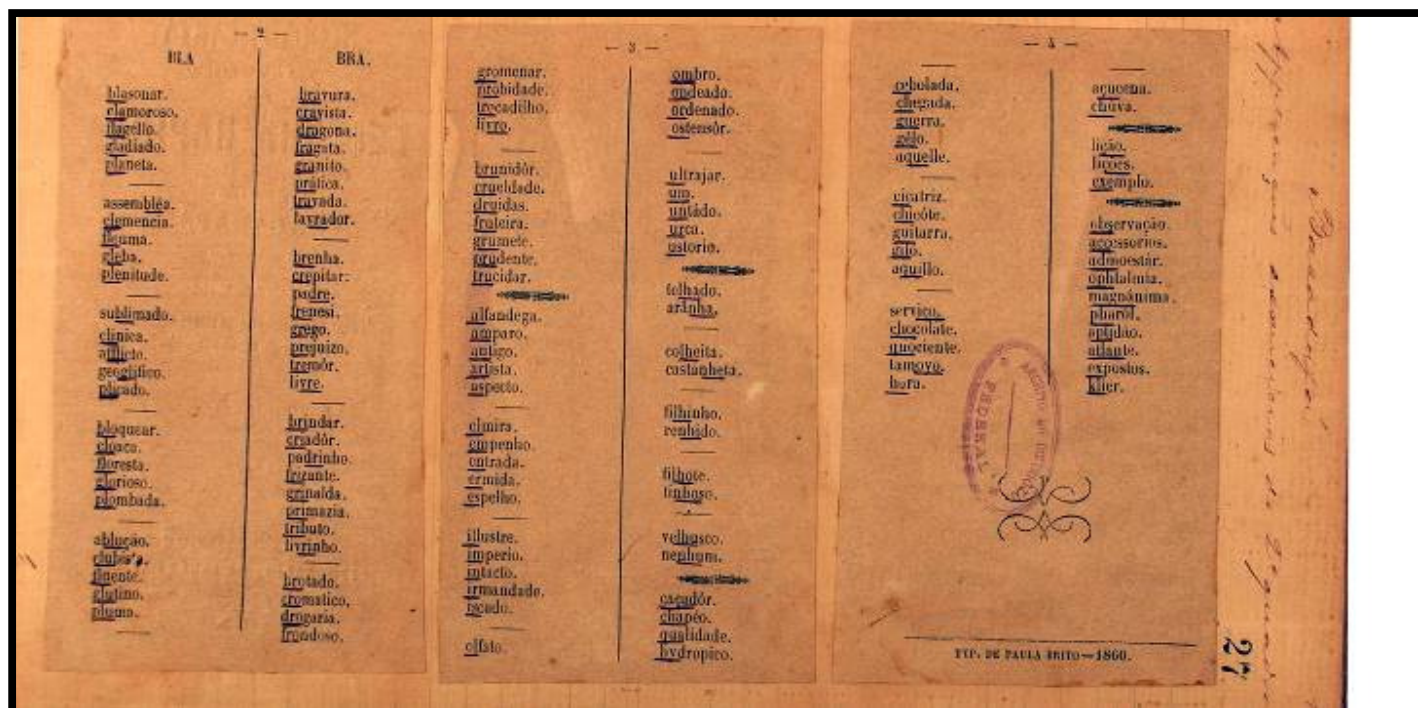 — 2 —
BLA
blasonar.
clamoroso.
flagello.
gladiado.
planeta.
assembléa.
clemencia.
fleuma.
gleba.
plenitude.
sublimado.
clinica.
afflicto.
geoglifico.
plicado.
bloquear.
cloaca.
floresta.
glorioso.
plombada.
ablução.
fluente.
glutino.
pluma.
BRA.
bravura.
cravista.
dragona.
fragata.
granito.
prática.
travada.
lavrador.
brenha.
crepitar:
padre.
frenesi.
grego.
prejuizo.
tremór.
livre.
brindar.
criadôr.
padrinho.
frizante.
grinalda.
primazia.
tributo.
livrinho.
brotado.
cromatico,
drogaria.
frondoso.
— 3 —
gromenar.
probidade.
trocadilho.
livro.
brunidôr.
crueldade.
druidas.
fruteira.
grumete.
prudente.
trucidar.
alfandega.
amparo.
antigo.
artista.
aspecto.
elmira.
empenho.
entrada.
ermida.
espelho.
illustre.
imperio.
intacto.
irmandade.
iscado.
olfato.
ombro.
ondeado.
ordenado.
ostensôr.
ultrajar.
um.
untádo.
urca.
ustorio.
telhado.
aranha.
colheita.
castanheta.
filhinho.
renhido.
filhote.
tinhoso.
velhusco.
nenhum.
caçadôr.
chapéo.
qualidade.
hydropico.
— 4 —
cebolada.
chegada.
guerra.
gêlo.
aquelle.
cicatriz.
chicóte.
guitarra.
aquillo.
serviço.
chocolate.
quociente.
tamoyo.
hora.
açucena.
chuva.
lição.
lições.
exemplo.
observação.
accessorios.
admoestár.
ophtalmia.
magnánima.
pharol.
aptidão.
atlante.
expostos.
klier.
TYP. DE PAULA BRITO—1860.
27